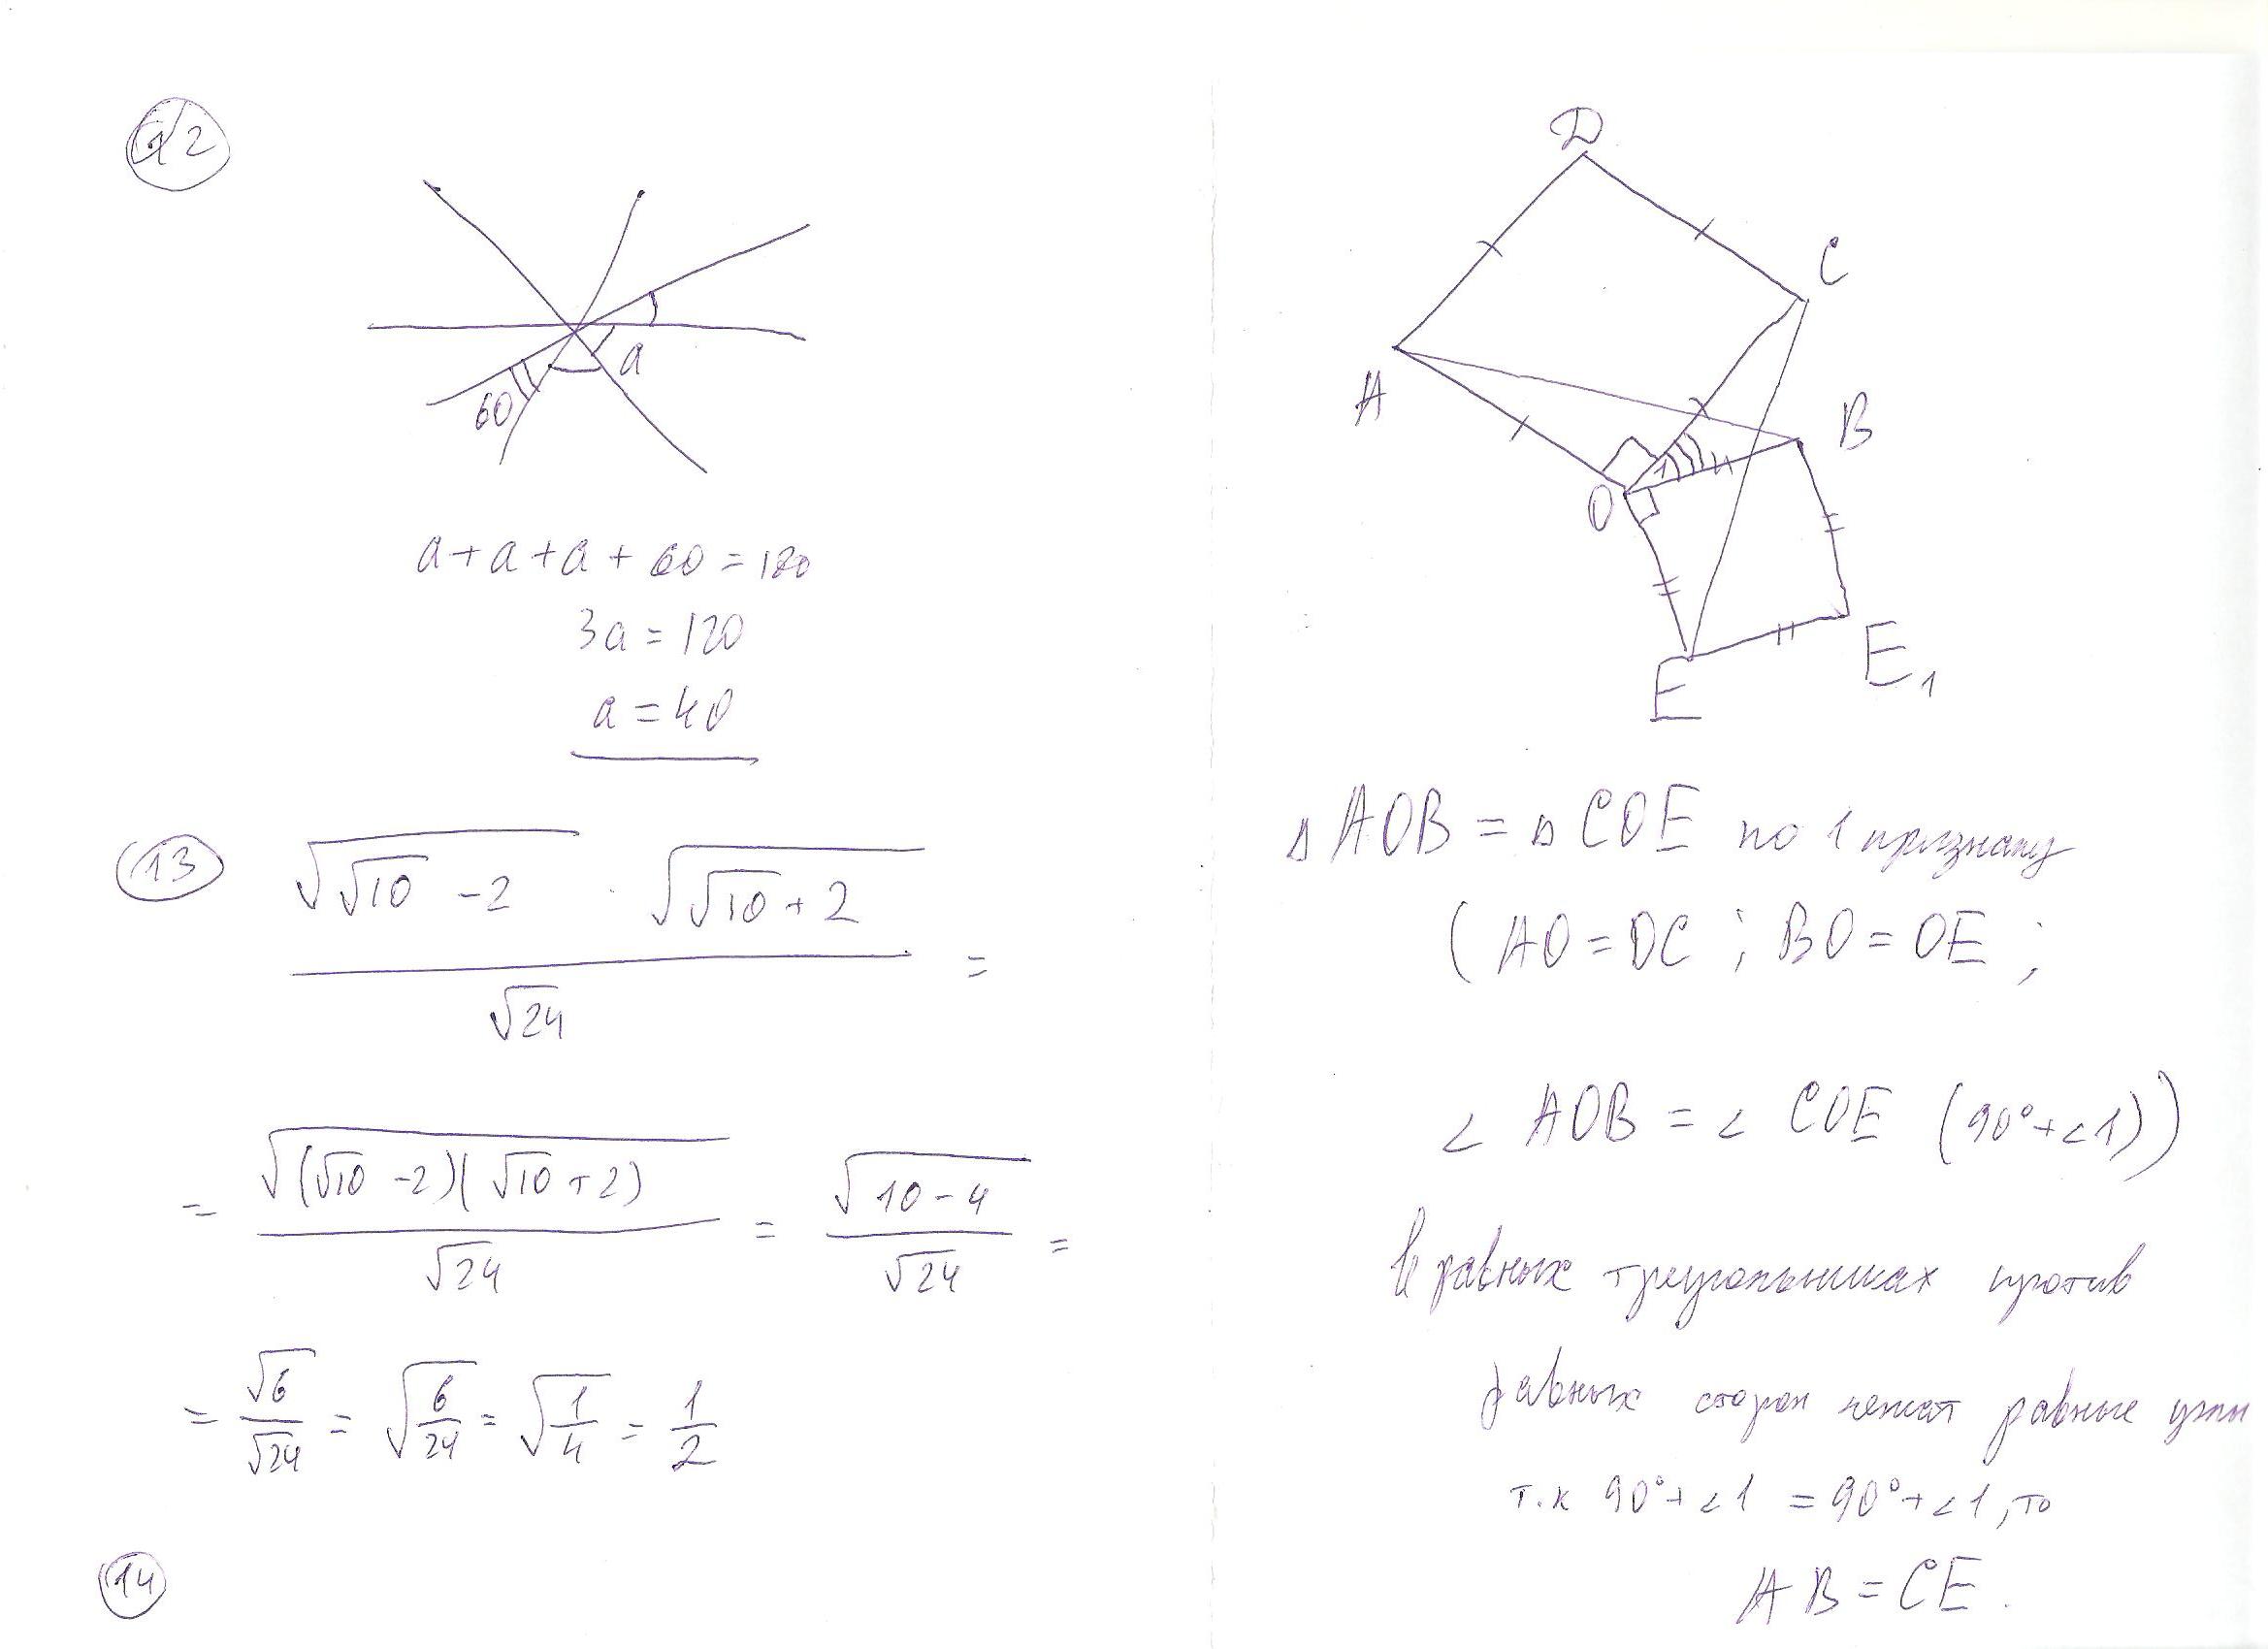 12
a
60
a + a + a + 60 = 180
3a = 120
a = 40
13
√(√10 - 2) · √(√10 + 2)
√24 =
= √((√10 - 2)(√10 + 2)) / √24 = √(10 - 4) / √24 =
= √6 / √24 = √(6/24) = √(1/4) = 1/2
14
D
C
A
B
O
1
E
E₁
△ AOB = △ COE по 1 признаку
( AO = OC ; BO = OE ;
∠ AOB = ∠ COE (90° + ∠1))
В равных треугольниках против
равных сторон лежат равные углы
т.к 90° + ∠1 = 90° + ∠1, то
AB = CE.